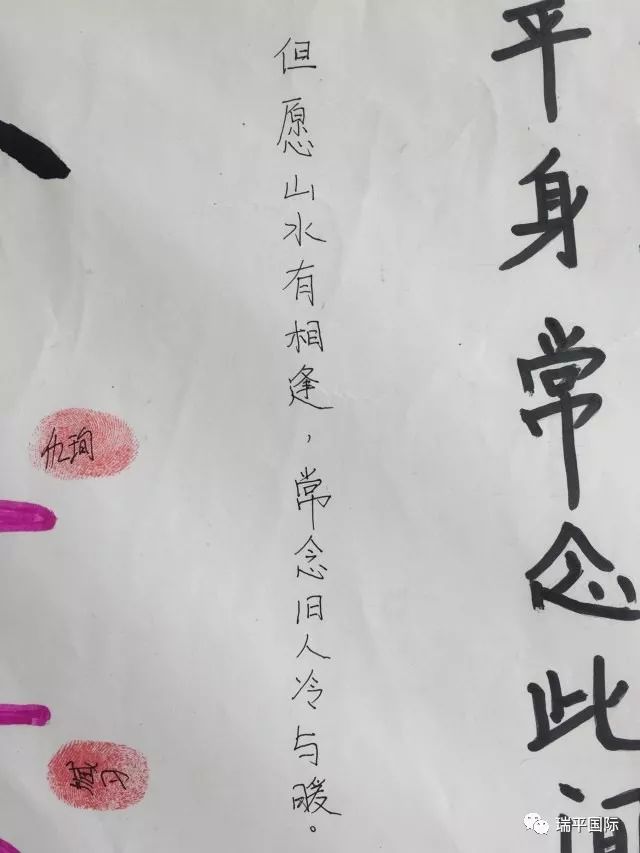 平身常念此间
但愿山水有相逢，常念旧人冷与暖。
仇珣
瑞平国际